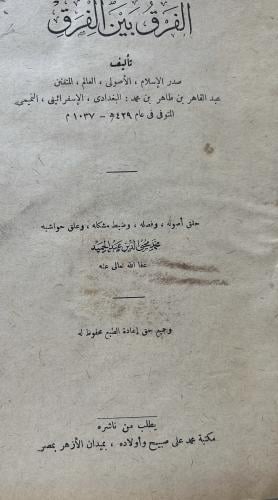 الفَرْقُ بَيْنَ الْفِرَقِ
تأليف
صدر الإسلام ، الأصولى ، العالم ، المتفنن
عبد القاهر بن طاهر بن محمد : البغدادى ، الإسفرائينى ، التميمى
المتوفى فى عام ٤٢٩ هـ - ١٠٣٧ م
حقق أصوله ، وفصله ، وضبط مشكله ، وعلق حواشيه
محمد محيى الدين عبد الحميد
عفا الله تعالى عنه
وجميع حق إعادة الطبع محفوظ له
يطلب من ناشره
مكتبة محمد على صبيح وأولاده ، بميدان الأزهر بمصر